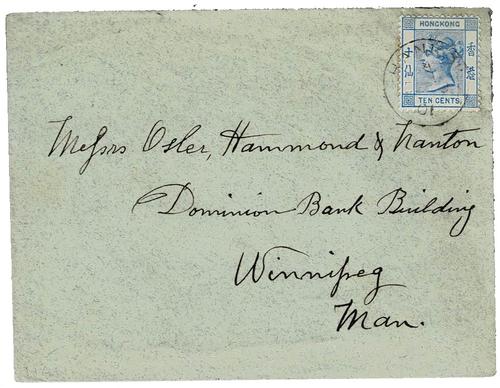 HONGKONG
香港
TEN CENTS
Messrs Osler, Hammond & Nanton
Dominion Bank Building
Winnipeg
Man.